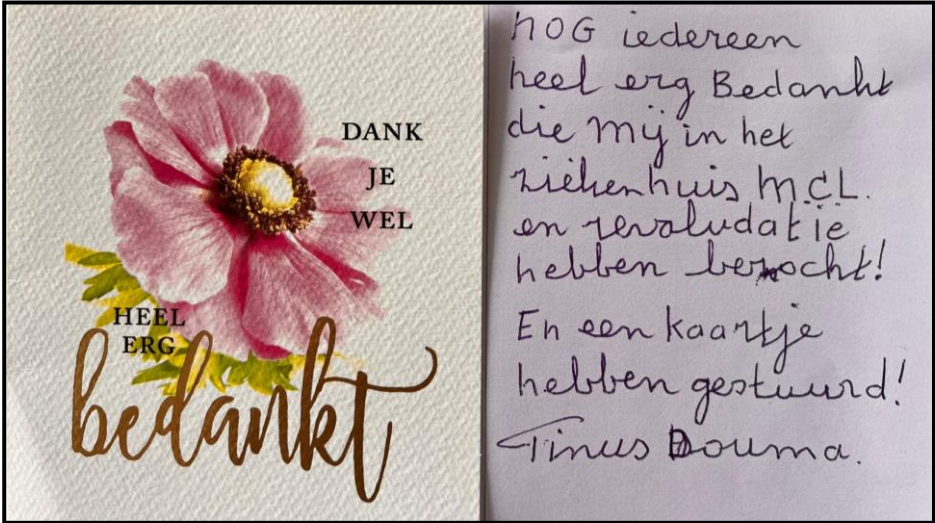 DANK
JE
WEL
HEEL
ERG
bedankt
NOG iedereen
heel erg Bedankt
die Mij in het
ziekenhuis MCL.
en revaludatie
hebben bezocht!
En een kaartje
hebben gestuurd!
Tinus Douma.